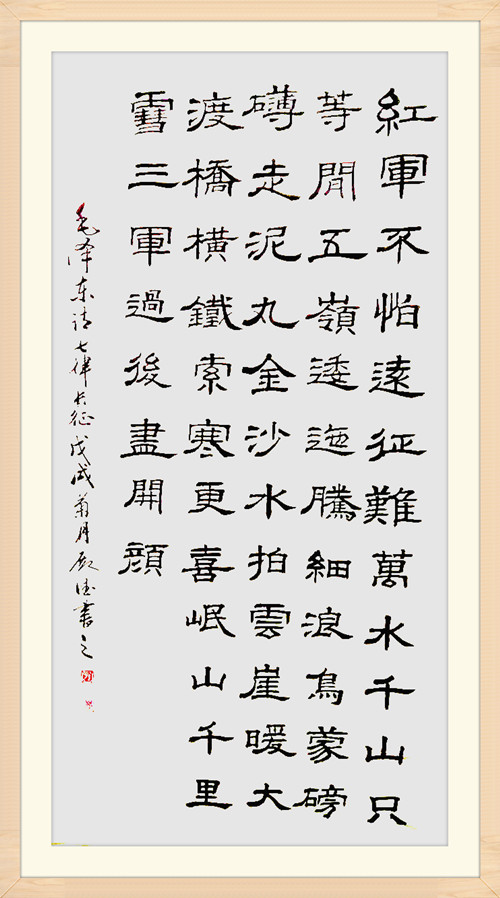 紅軍不怕遠征難萬水千山只
等閒五嶺逶迤騰細浪烏蒙磅
礡走泥丸金沙水拍雲崖暖大
渡橋橫鐵索寒更喜岷山千里
雪三軍過後盡開顏
毛泽东诗七律长征戊戌菊月書之